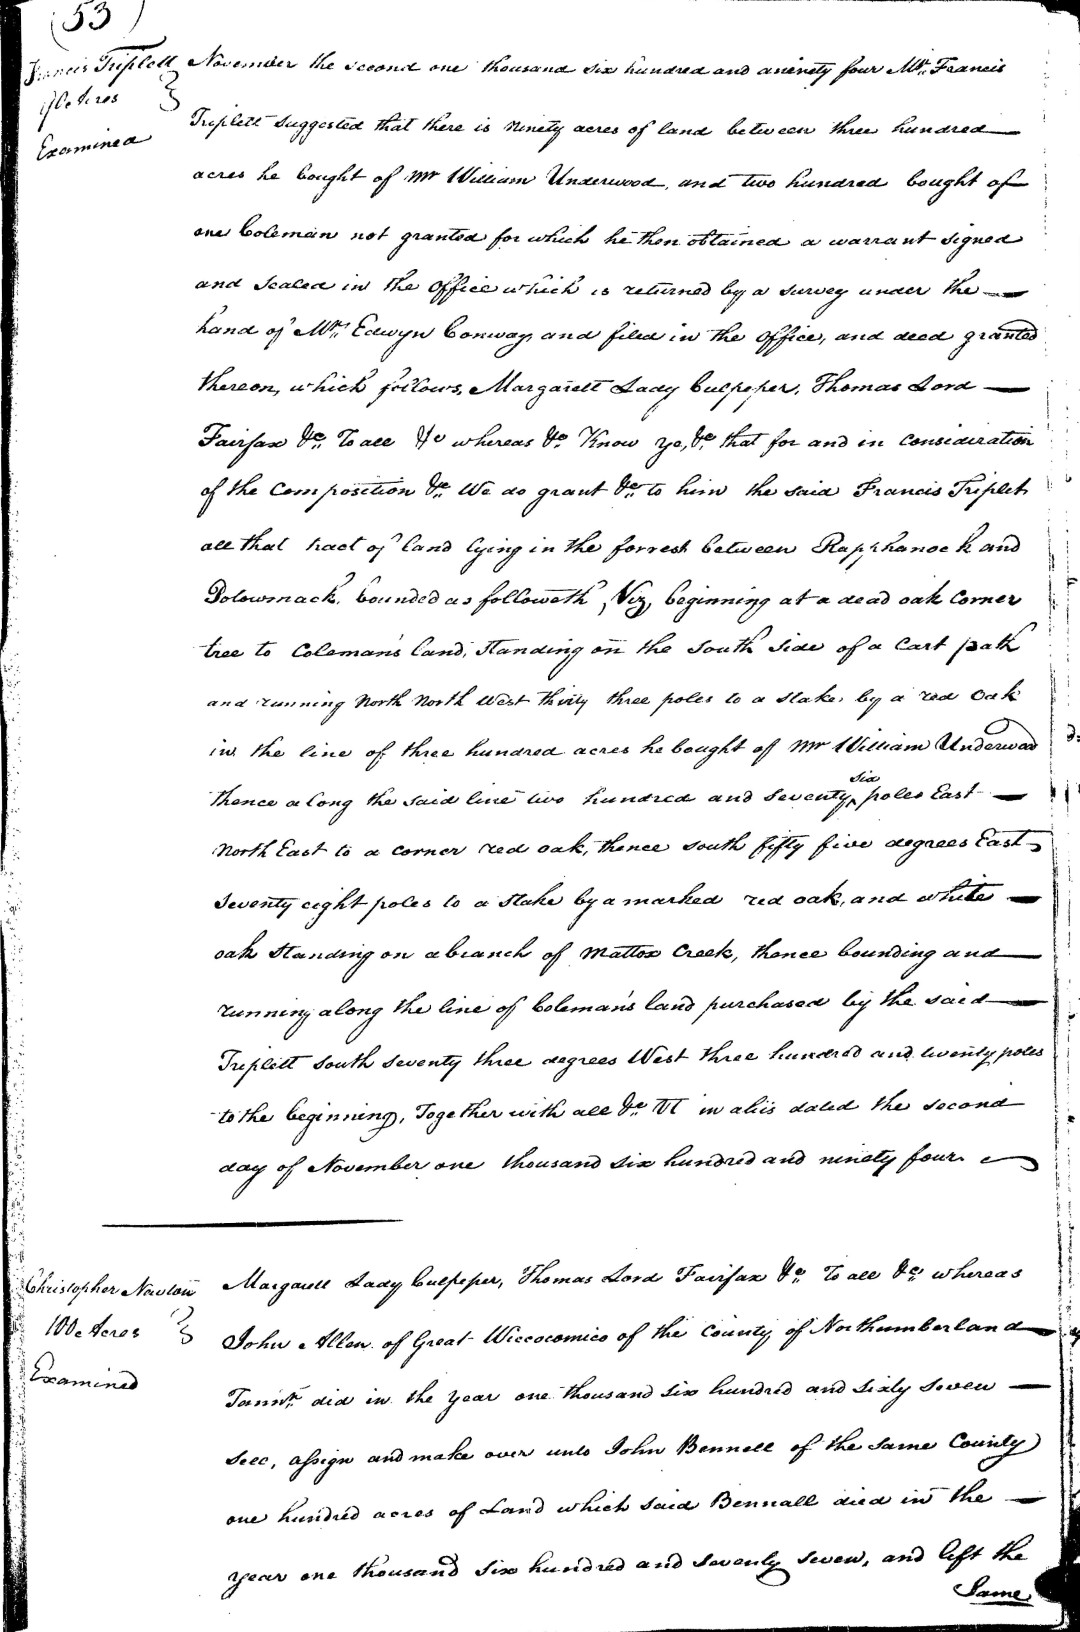 (53)
Francis Triplett
90 Acres
Examined
November the second one thousand six hundred and aninety four Mr. Francis
Triplett suggested that there is ninety acres of land between three hundred
acres he bought of Mr William Underwood, and two hundred bought of
one Coleman not granted for which he then obtained a warrant signed
and sealed in the office which is returned by a survey under the
hand of Mr. Edwyn Conway, and filed in the office, and deed granted
thereon, which follows, Margarett Lady Culpeper, Thomas Lord
Fairfax &c. To all &c whereas &c Know ye, &c. that for and in consideration
of the Composition &c. We do grant &c. to him the said Francis Triplet
all that tract of land lying in the forrest between Rapphanock and
Potowmack, bounded as followeth, Viz, beginning at a dead oak Corner
tree to Coleman's land, standing on the South Side of a Cart path
and running North North West thirty three poles to a stake, by a red Oak
in the line of three hundred acres he bought of Mr William Underwood
thence along the said line two hundred and seventy ^six poles East
North East to a corner red oak, thence south fifty five degrees East
seventy eight poles to a stake by a marked red oak, and white
oak standing on a branch of Mattox Creek, thence bounding and
running along the line of Coleman's land purchased by the said
Triplett South seventy three degrees West three hundred and twenty poles
to the beginning, Together with all &c. Ut in aliis dated the second
day of November one thousand six hundred and ninety four
Christopher Newton
100 Acres
Examined
Margarett Lady Culpeper, Thomas Lord Fairfax &c. To all &c. whereas
John Allen of Great Wiccocomico of the County of Northumberland
Tannr. did in the year one thousand six hundred and sixty seven
sell, assign and make over unto John Bennell of the same County
one hundred acres of Land which said Bennall died in the
year one thousand six hundred and seventy seven, and left the
Same